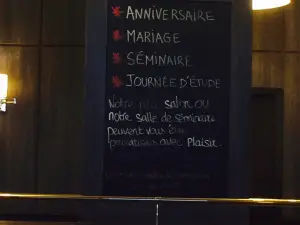 ANNIVERSAIRE
MARIAGE
SÉMINAIRE
JOURNÉE D'ÉTUDE
Notre salon ou
notre salle de séminaire
peuvent vous être
avec plaisir